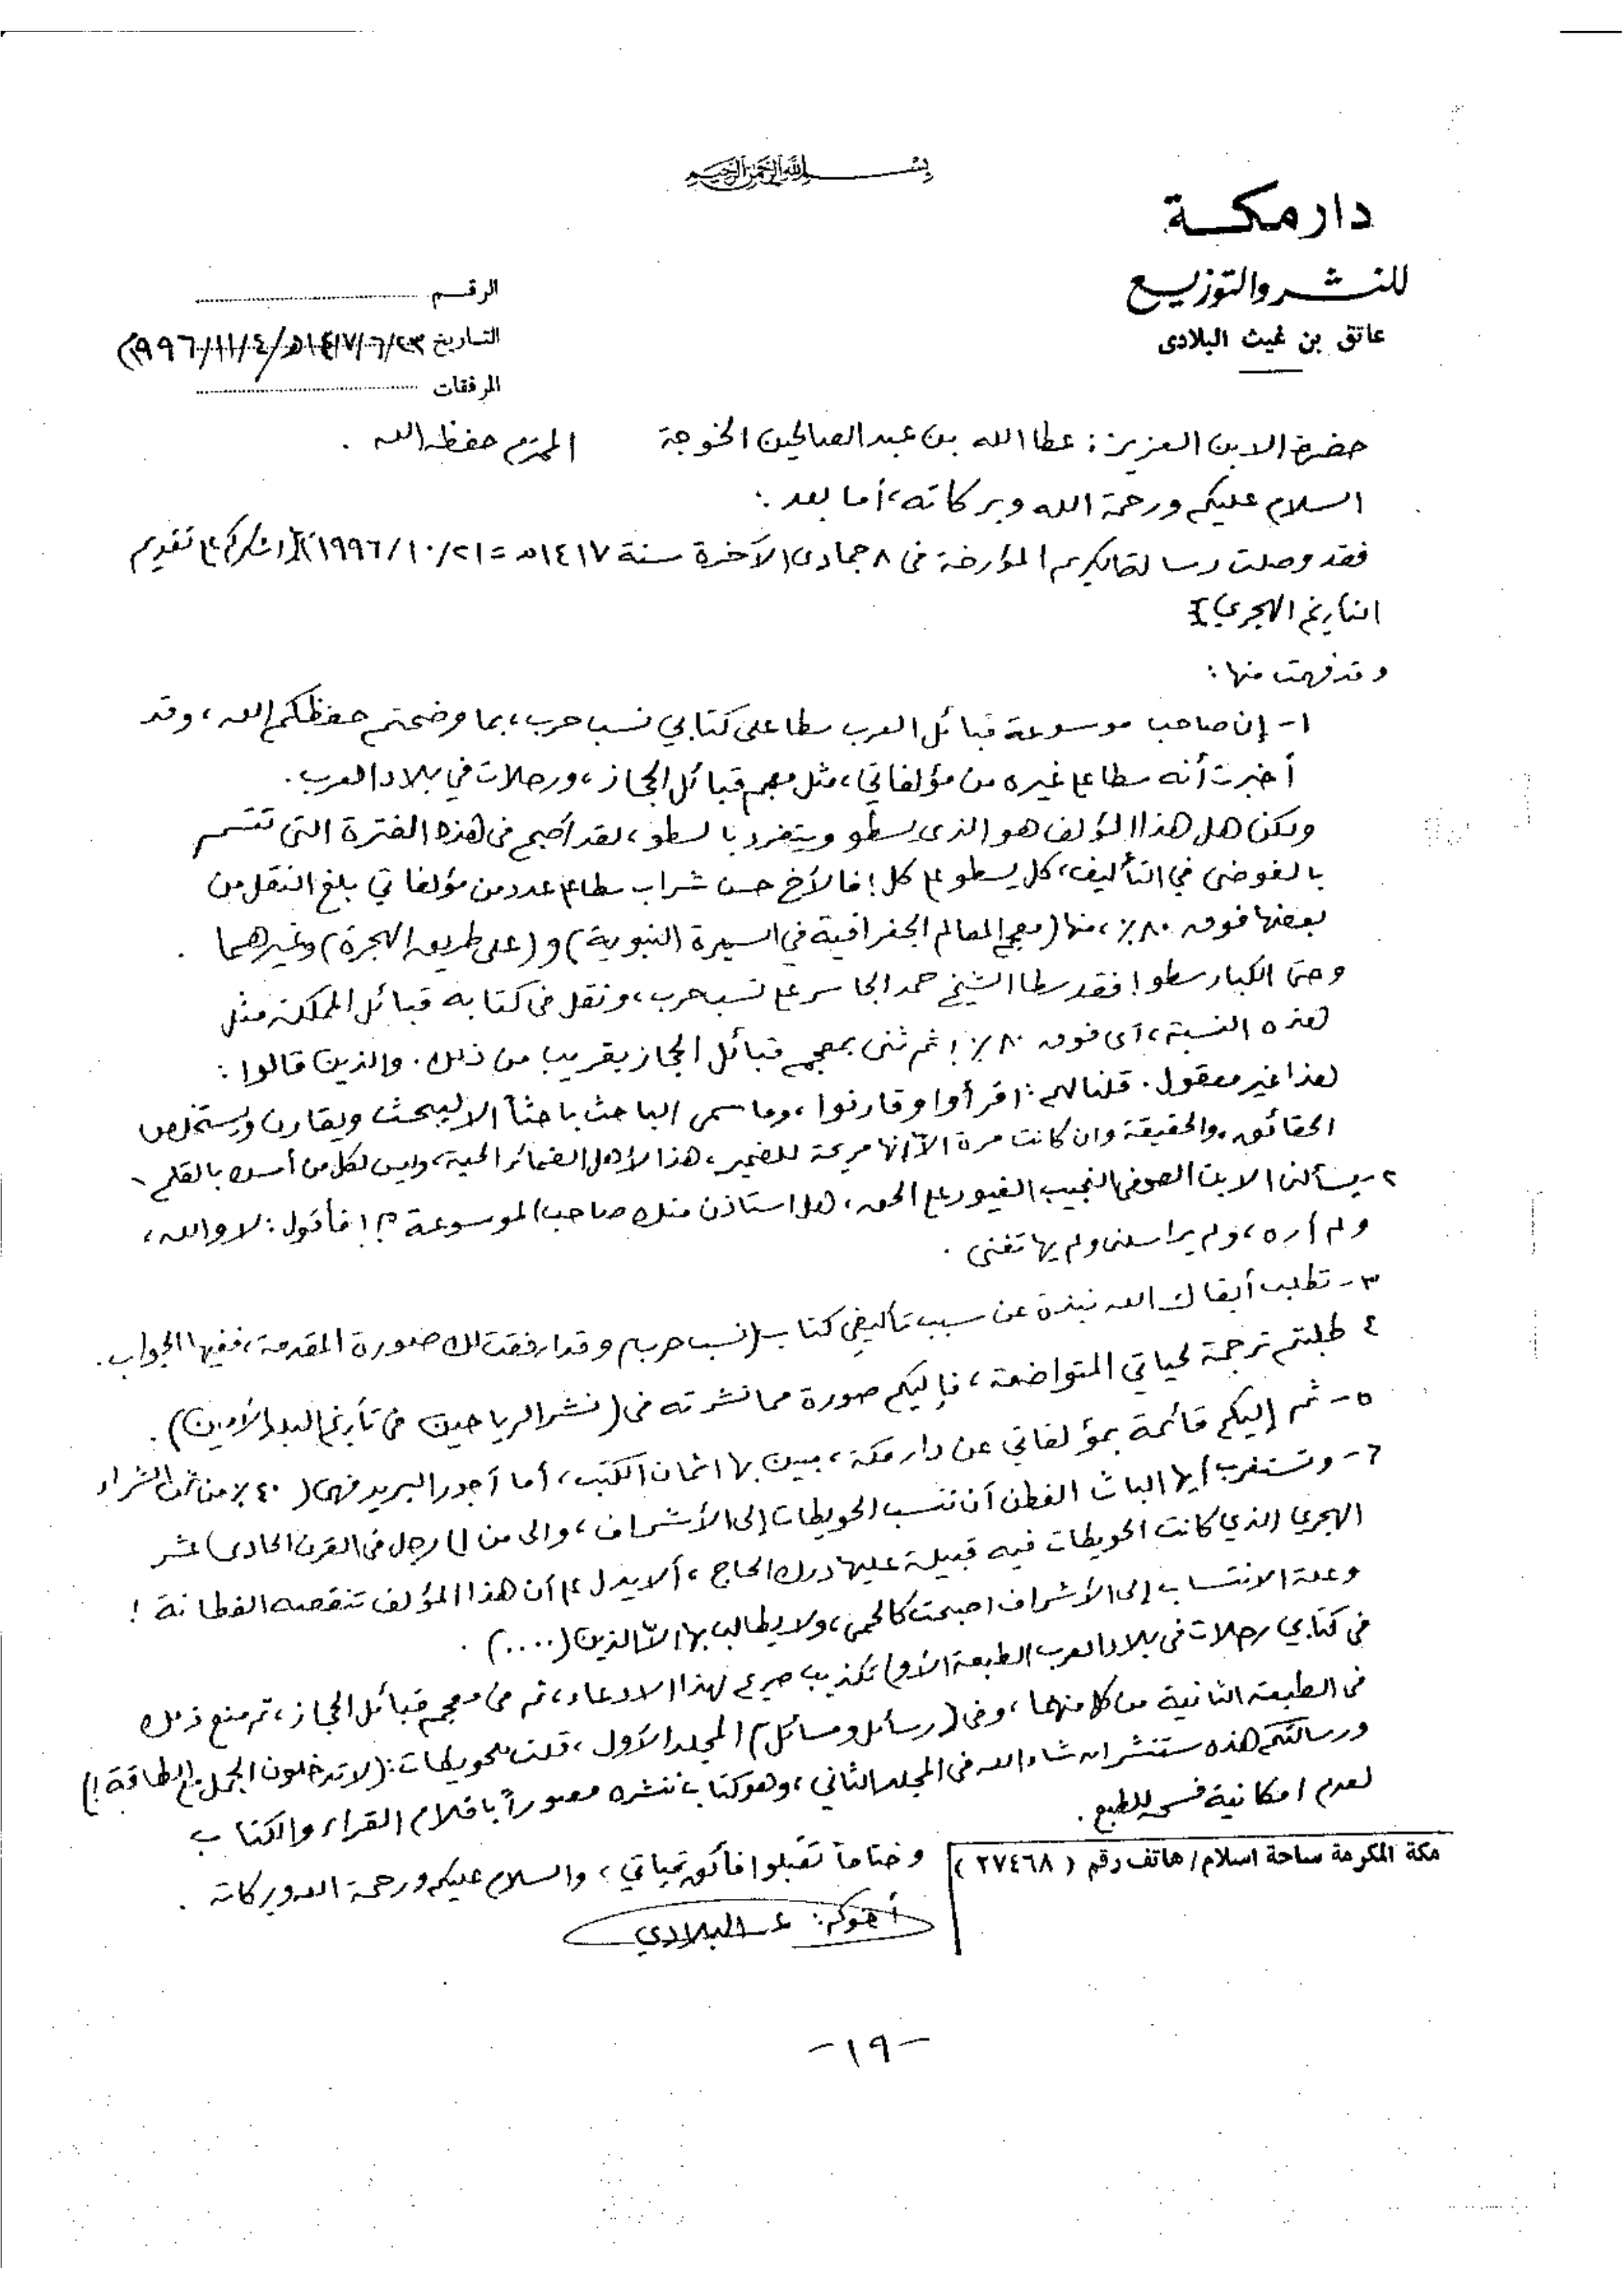 بسم الله الرحمن الرحيم
دار مكة
للنشر والتوزيع
عاتق بن غيث البلادى
الرقم
التاريخ ٢٣/٦/١٤١٧هـ/٤/١١/١٩٩٦م
المرفقات
حضرة الابن العزيز: عطا الله بن عبد الصالحين الخوجة المحترم حفظه الله .
السلام عليكم ورحمة الله وبركاته، أما بعد :
فقد وصلت رسالتكم الكريمة المؤرخة فى ٨ جمادى الآخرة سنة ١٤١٧هـ = ٢١/١٠/١٩٩٦م [اشكركم على تقديم
التاريخ الهجري]
وقد فهمت منها :
١- إن صاحب موسوعة قبائل العرب سطا على كتابي نسب حرب، بما وضحتم حفظكم الله، وقد
أخبرت أنه سطا على غيره من مؤلفاتي، مثل معجم قبائل الحجاز، ورحلات في بلاد العرب.
ولكن هل هذا المؤلف هو الذى يسطو ويتفرد بالسطو، لقد أصبح فى هذه الفترة التى تتسم
بالفوضى في التأليف، كل يسطو على كل! فالأخ حسن شراب سطا على عدد من مؤلفاتي بلغ النقل من
بعضها فوق ٨٠٪، منها (معجم المعالم الجغرافية في السيرة النبوية) و (على طريق الهجرة) وغيرهما .
وحتى الكبار سطوا فقد سطا الشيخ حمد الجاسر على نسب حرب، ونقل فى كتابه قبائل المملكة مثل
هذه النسبة، أى فوق ٨٠٪! ثم ثنى بمعجم قبائل الحجاز بقريب من ذلك. والذين قالوا :
هذا غير معقول. قلنا لهم: اقرأوا وقارنوا، وما سمى الباحث باحثاً الا ليبحث ويقارن ويستخلص
الحقائق، والحقيقة وان كانت مرة الا أنها مريحة للضمير، هذا لأهل الضمائر الحية، وليس لكل من أمسك بالقلم
٢- يسألنى الابن الصوفى النجيب الغيور على الحق، هل استاذن منك صاحب الموسوعة ؟! فأقول: لا والله،
ولم أره، ولم يراسلنى ولم يهاتفنى .
٣- تطلب أبقاك الله نبذة عن سبب تأليفي كتاب (نسب حرب) وقد ارفقت لك صورة المقدمة، ففيها الجواب.
٤ طلبتم ترجمة لحياتي المتواضعة، فإليكم صورة مما نشرته فى (نشر الرياحين فى تأريخ البلد الأمين) .
٥- ثم إليكم قائمة بمؤلفاتي عن دار مكة، مبين بها اثمان الكتب، أما أجور البريد فهى (٤٠٪ من ثمن الشراء
٦- وتستغرب أيها الباث الفطن أن تنسب الحويطات إلى الأشراف، والى من ؟! رجل فى القرن الحادى عشر
الهجري الذي كانت الحويطات فيه قبيلة عليها درك الحاج، ألا يدل على أن هذا المؤلف تنقصه الفطانة !
وعلة الانتساب إلى الأشراف اصبحت كالحمى، ولا يطالب بها الاّ الذين (....) .
فى كتابي رحلات فى بلاد العرب الطبعة الأولى تكذيب صريح لهذا الادعاء، ثم فى معجم قبائل الحجاز، ثم منع ذلك
فى الطبعة الثانية من كل منهما، وفى (رسائل ومسائل) المجلد الأول، قلت للحويطات: (لا تدخلون الجمل مع الطاقة!)
ورسالتكم هذه ستنشر ان شاء الله فى المجلد الثاني، وهو كتاب ننشره مصوراً باقلام القراء والكتاب
لعدم امكانية فسحه للطبع .
وختاماً تقبلوا فائق تحياتي، والسلام عليكم ورحمة الله وبركاته .
أخوكم: ع البلادي
مكة المكرمة ساحة اسلام/ هاتف رقم ( ٢٧٤٦٨ )
-١٩-